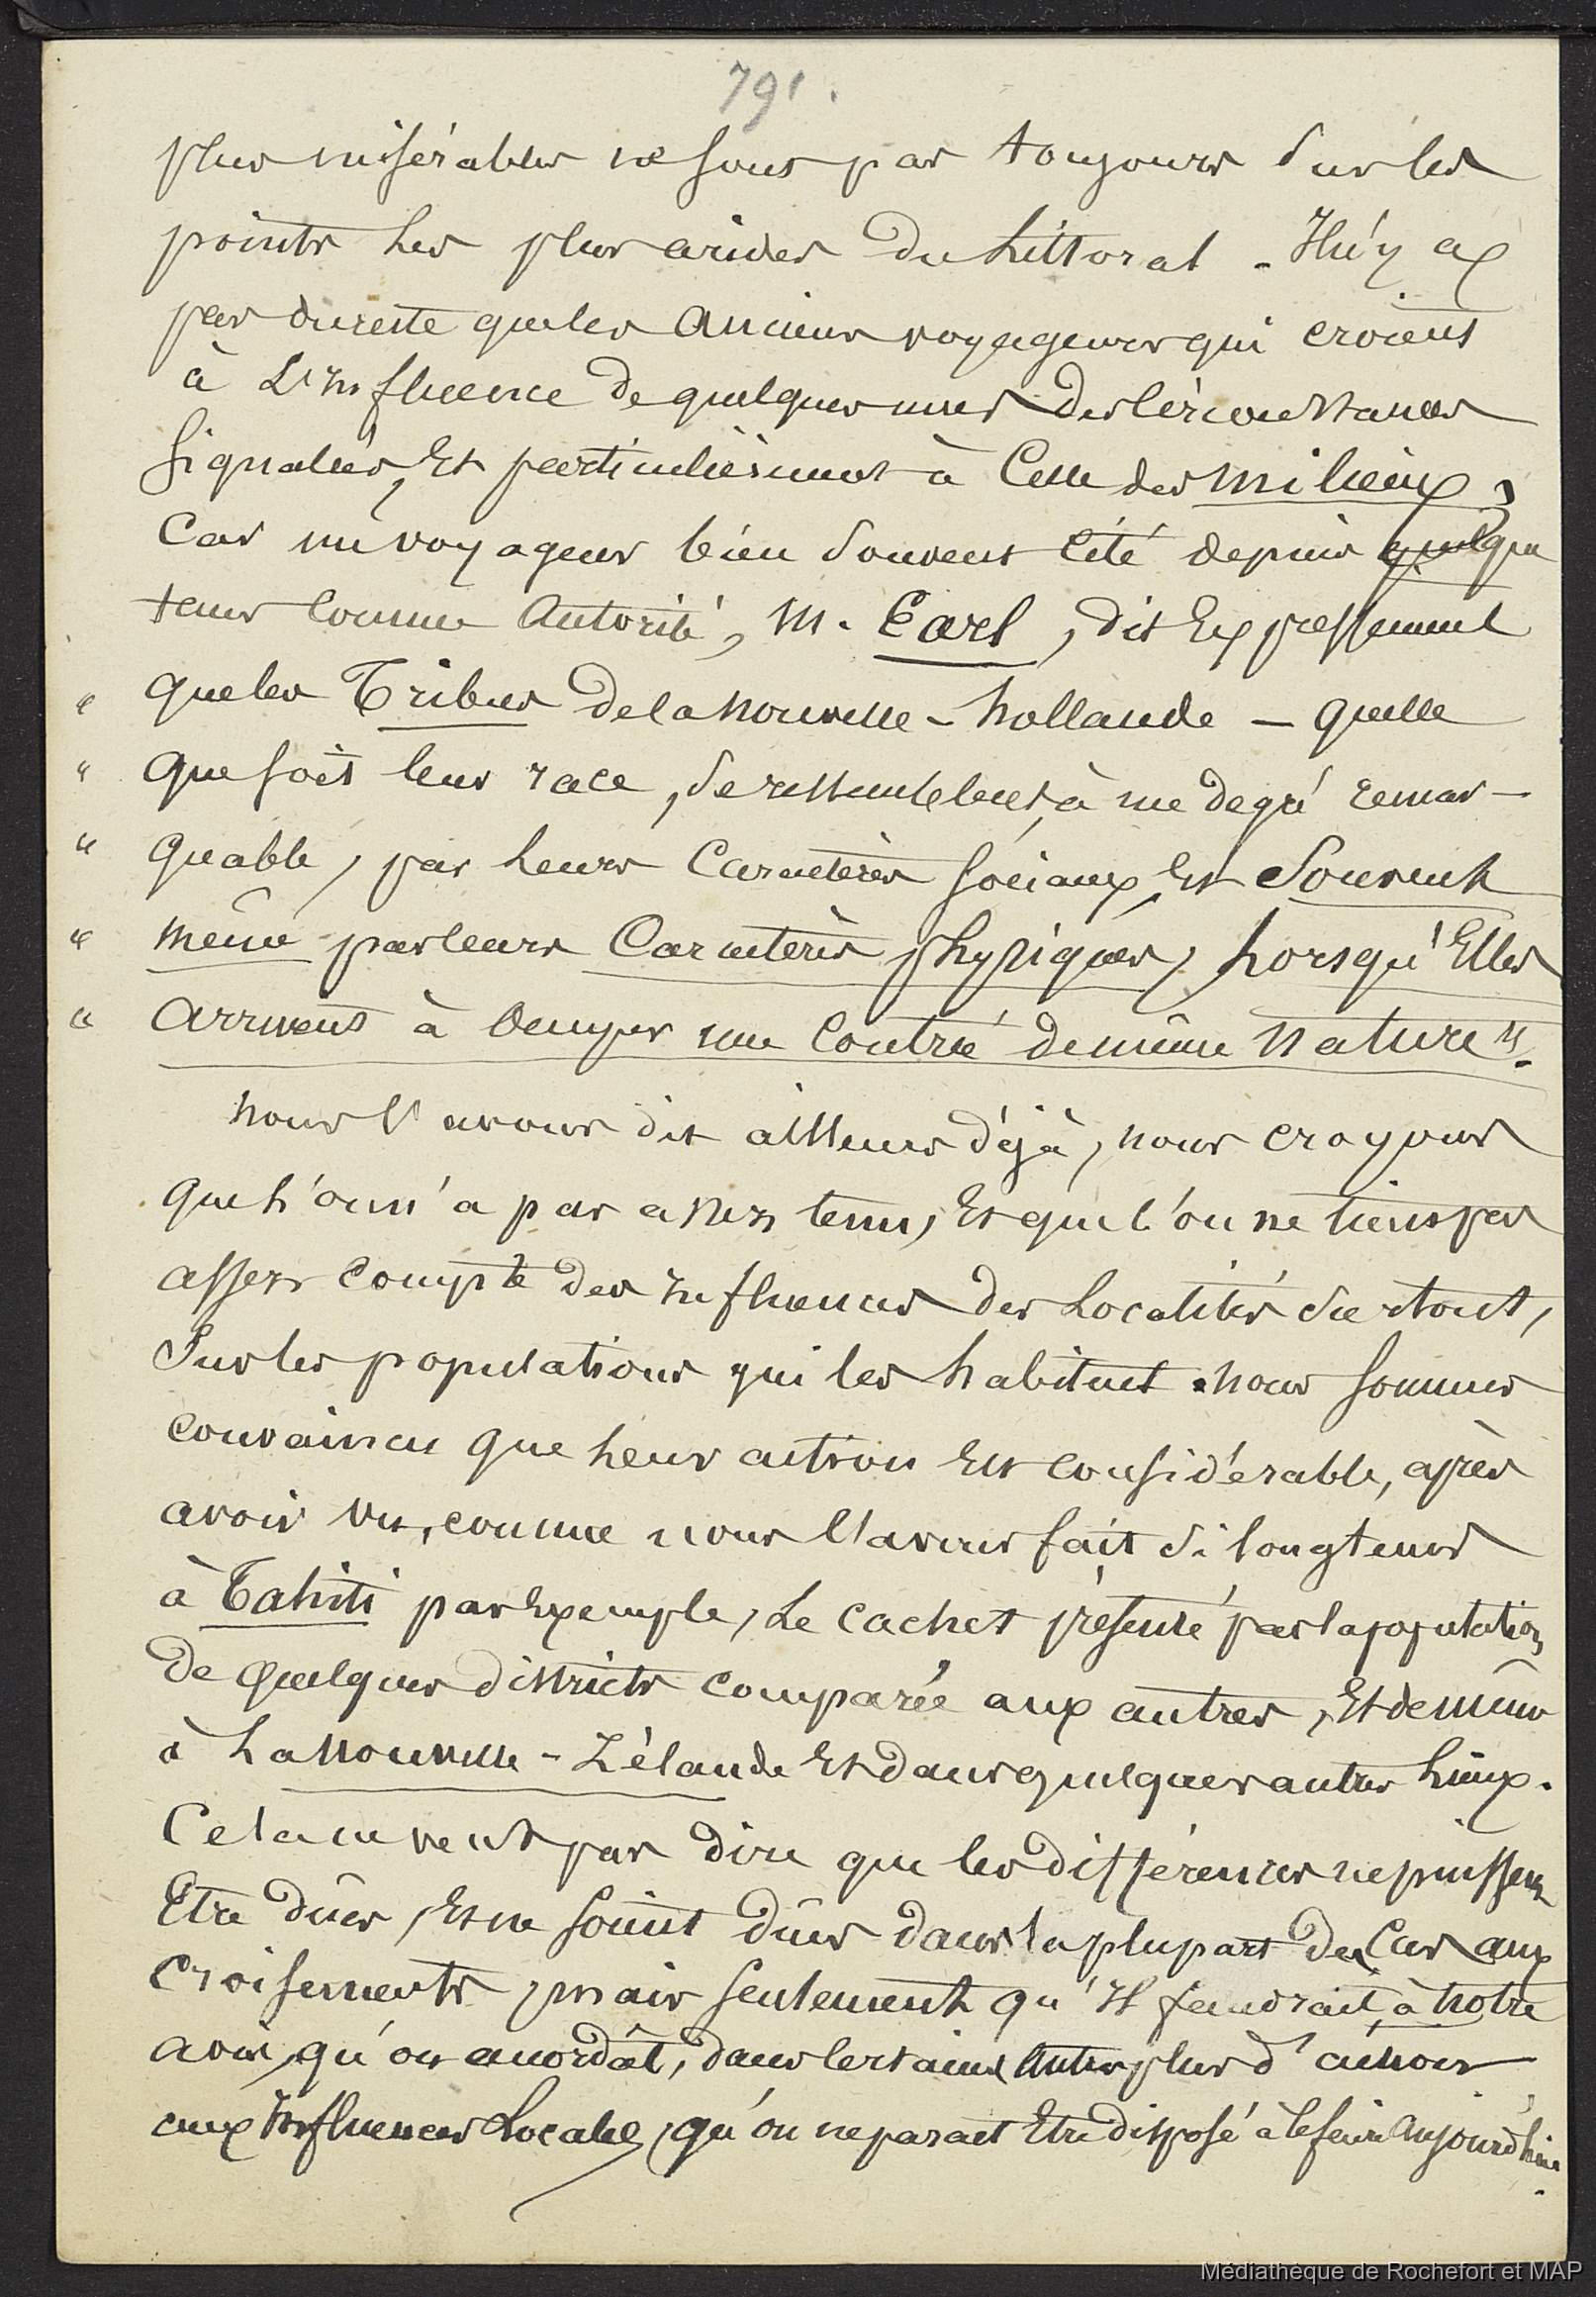 791.
plus misérables ne sont pas toujours sur les
points les plus arides du Littoral - Il n'y a
pas du reste que les anciens voyageurs qui croient
à L'influence de quelques unes des circonstances
signalées, Et particulièrement à Celle des milieux,
Car un voyageur bien souvent cité depuis quelque
tems comme Autorité, M. Earl, dit Expressément
" que les Tribus de la nouvelle-hollande - quelle
" que soit leur race, se ressemblent, à un degré remar-
" quable, par leurs Caractères sociaux, Et Souvent
" même par leurs Caractères physiques, Lorsqu'Elles
" arrivent à occuper une Contrée de même Nature ".
nous l'avons dit ailleurs déjà, nous croyons
que l'on n'a pas assez tenu, Et que l'on ne tient pas
assez compte des influences des Localités surtout,
Sur les populations qui les habitent. nous sommes
convaincu que leur action Est considérable, après
avoir vu, comme nous l'avons fait si longtems
à Tahiti par Exemple, Le cachet présenté par la population
de quelques districts comparée aux autres, Et de même
à La nouvelle-Zélande Et dans quelques autres Lieux.
Cela ne veut pas dire que les différences ne puissent
Etre dûes, Et ne soient dûes dans la plupart des Cas aux
croisements, mais seulement qu'Il faudrait, à notre
avis, qu'on accordât, dans certains Autres plus d'action
aux Influences Locales, qu'on ne parait Etre disposé à le faire Aujourd'hui.
Médiathèque de Rochefort et MAP